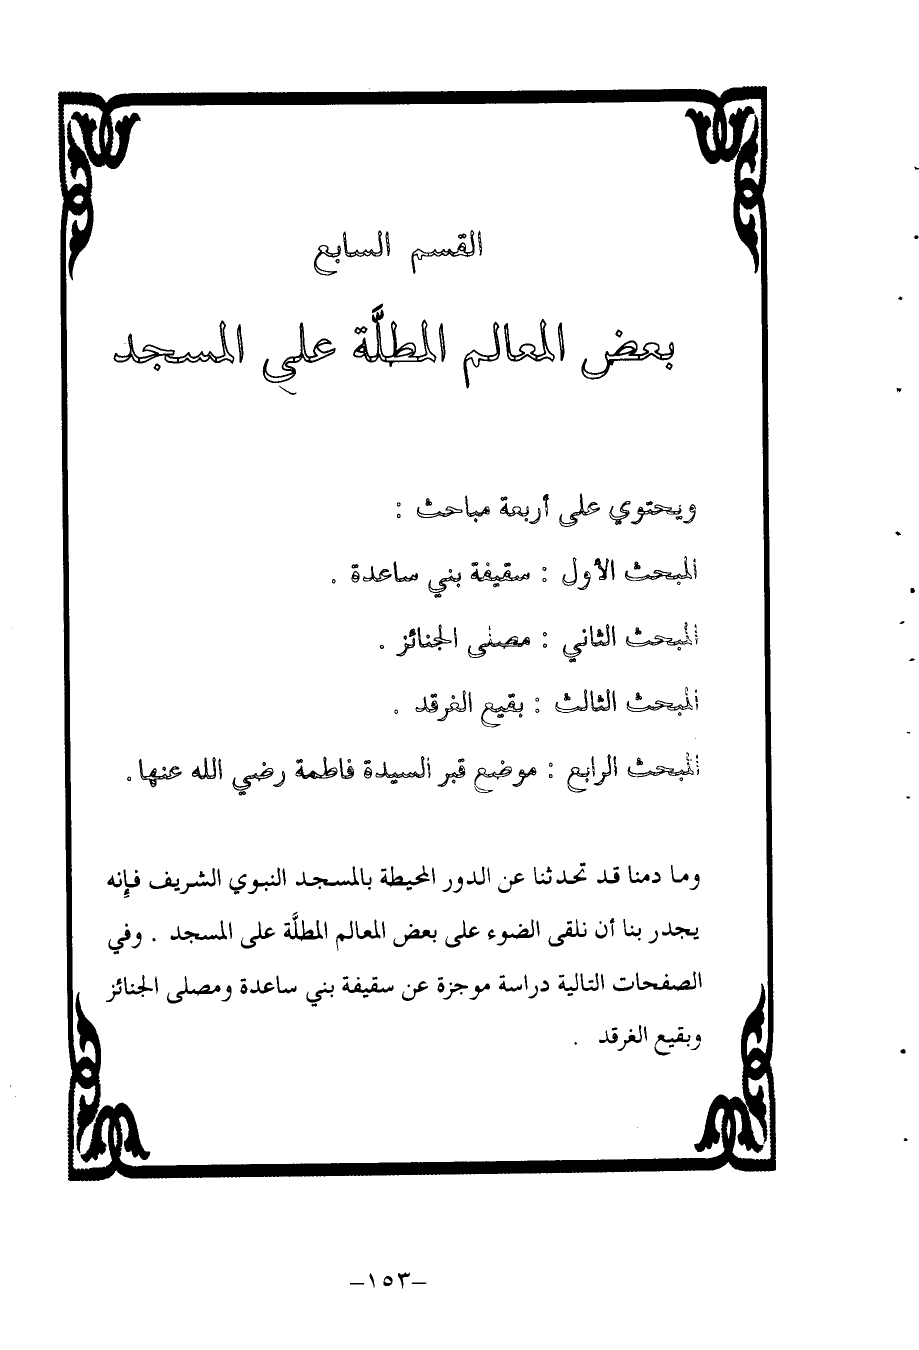 القسم السابع
بعض المعالم المطلَّة على المسجد
ويحتوي على أربعة مباحث :
المبحث الأول : سقيفة بني ساعدة .
المبحث الثاني : مصلى الجنائز .
المبحث الثالث : بقيع الغرقد .
المبحث الرابع : موضع قبر السيدة فاطمة رضي الله عنها .
وما دمنا قد تحدثنا عن الدور المحيطة بالمسجد النبوي الشريف فإنه
يجدر بنا أن نلقى الضوء على بعض المعالم المطلَّة على المسجد . وفي
الصفحات التالية دراسة موجزة عن سقيفة بني ساعدة ومصلى الجنائز
وبقيع الغرقد .
–١٥٣–